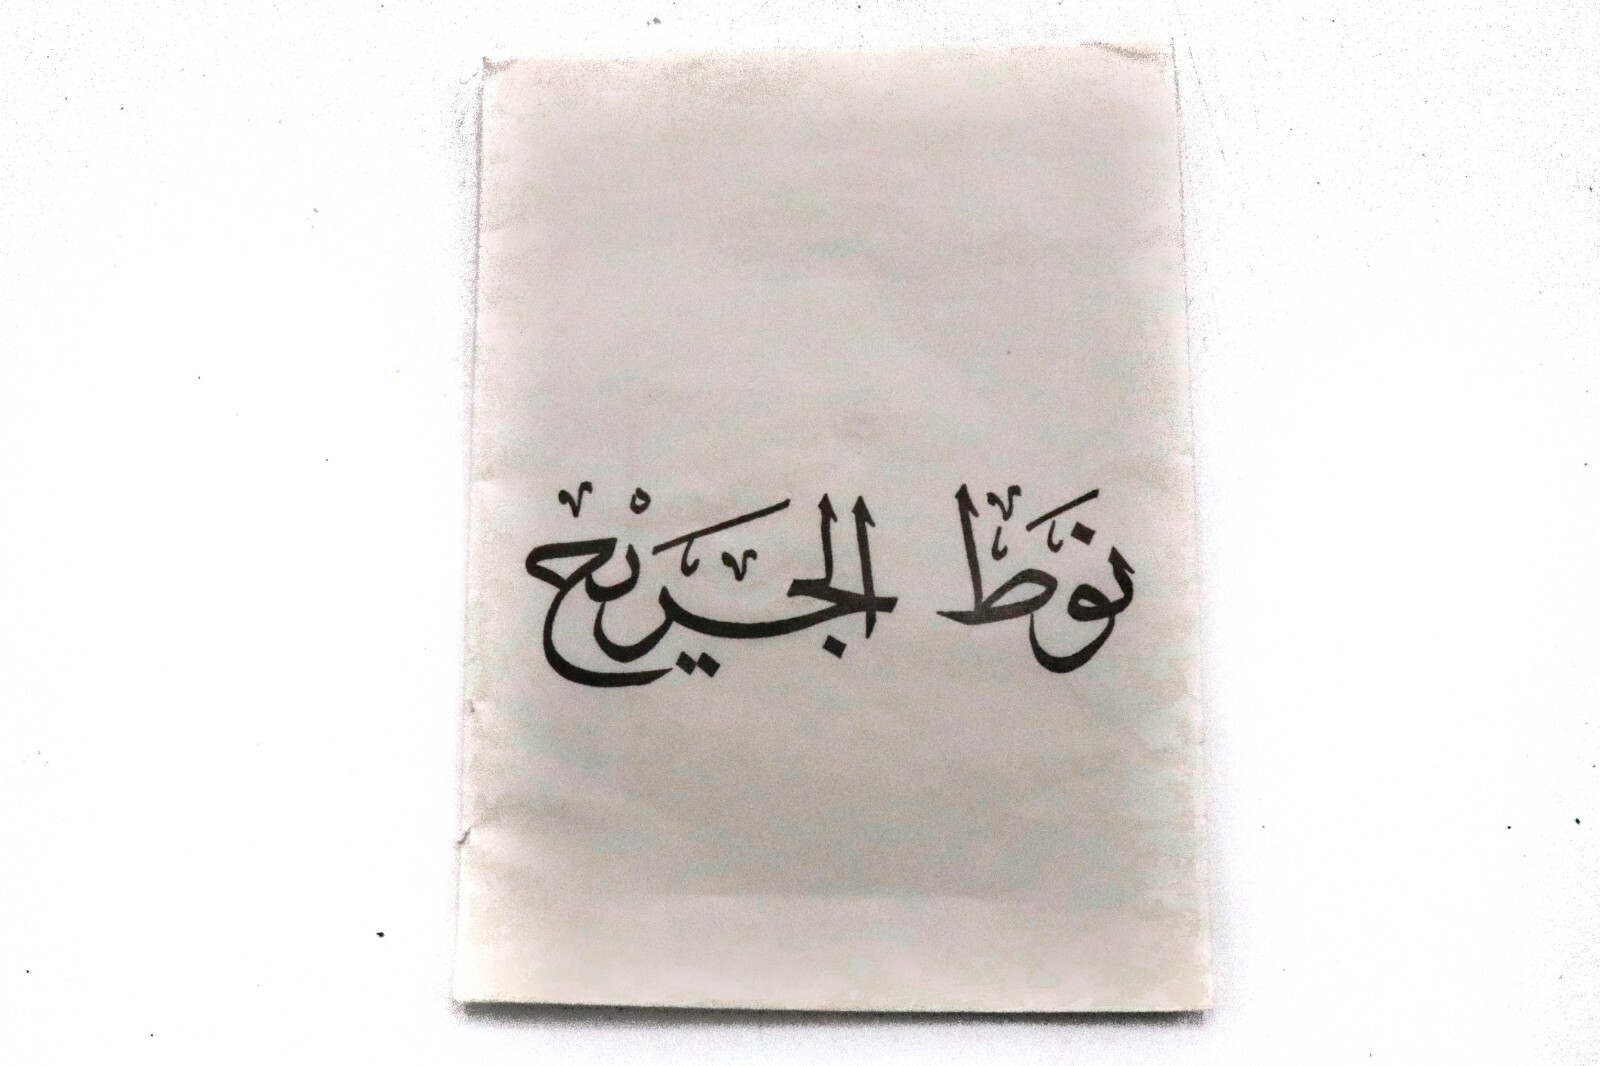 نَوط الجَريْح